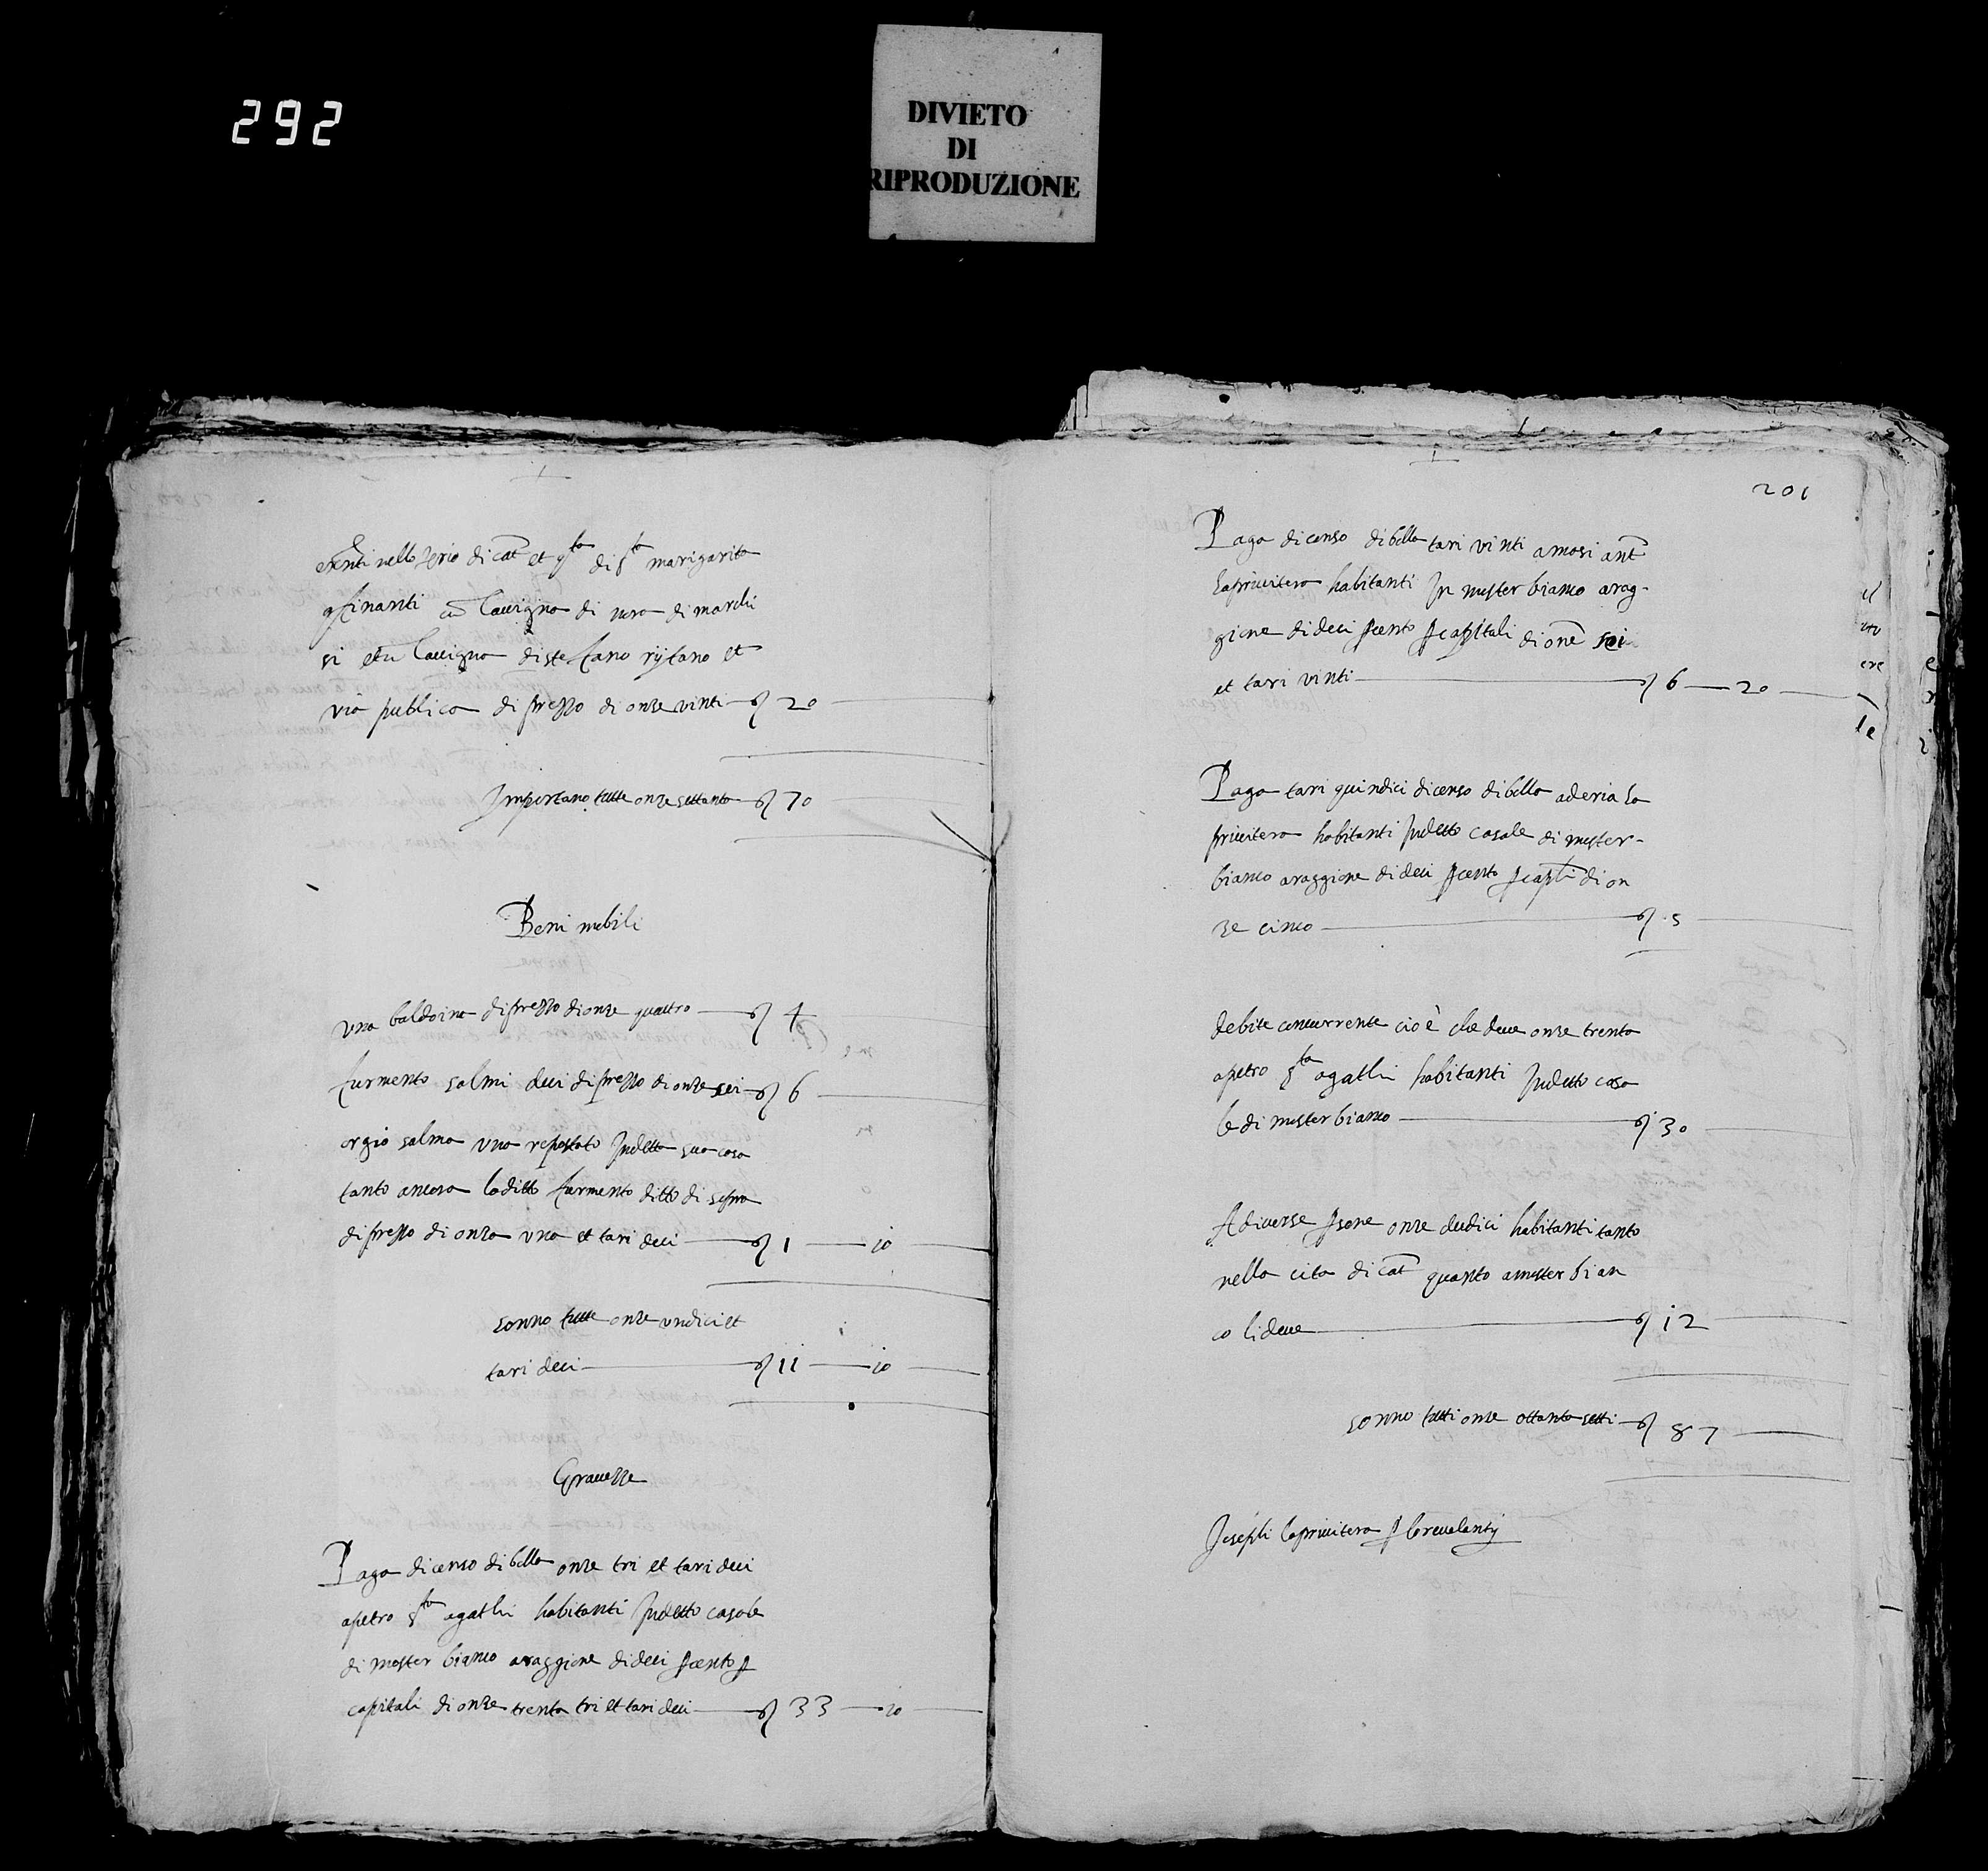 292
DIVIETO
DI
RIPRODUZIONE
nello di cat et di sta marigarita
cfinanti cu la vigna di di march
si et cu la vigna di stefano et
via publica di prezzo di onze vinti 20
Importano tutte onze settanta 70
Beni mobili
una baldoina di prezzo di onze quattro 4
furmento salmi deci di prezzo di onze sei 6
orgio salma una repostato In detta sua casa
tanto ancora lo ditto furmento ditto di sopra
di prezzo di onza una et tari deci 1 10
sonno tutte onze undici et
tari deci 11 10
Gravezze
Paga di censo di bolla onze tri et tari deci
a petro sta agathi habitanti In detto casale
di mister bianco a raggione di deci p cento p
capitali di onze trenta tri et tari deci 33 10
201
Paga di censo di bolla tari vinti a masi ant
la privitera habitanti In mister bianco a rag-
gione di deci p cento p capitali di onze sei
et tari vinti 6 20
Paga tari quindici di censo di bolla a la
privitera habitanti In detto casale di mister-
bianco a raggione di deci p cento p capli di on
ze cinco 5
debite concurrente cio è che deve onze trenta
a petro sta agathi habitanti In detto casa
le di mister bianco 30
A diverse psone onze dudici habitanti tanto
nella cita di cat quanto a mister bian
co li deve 12
sonno tutti onze ottanta setti 87
Joseph la privitera p